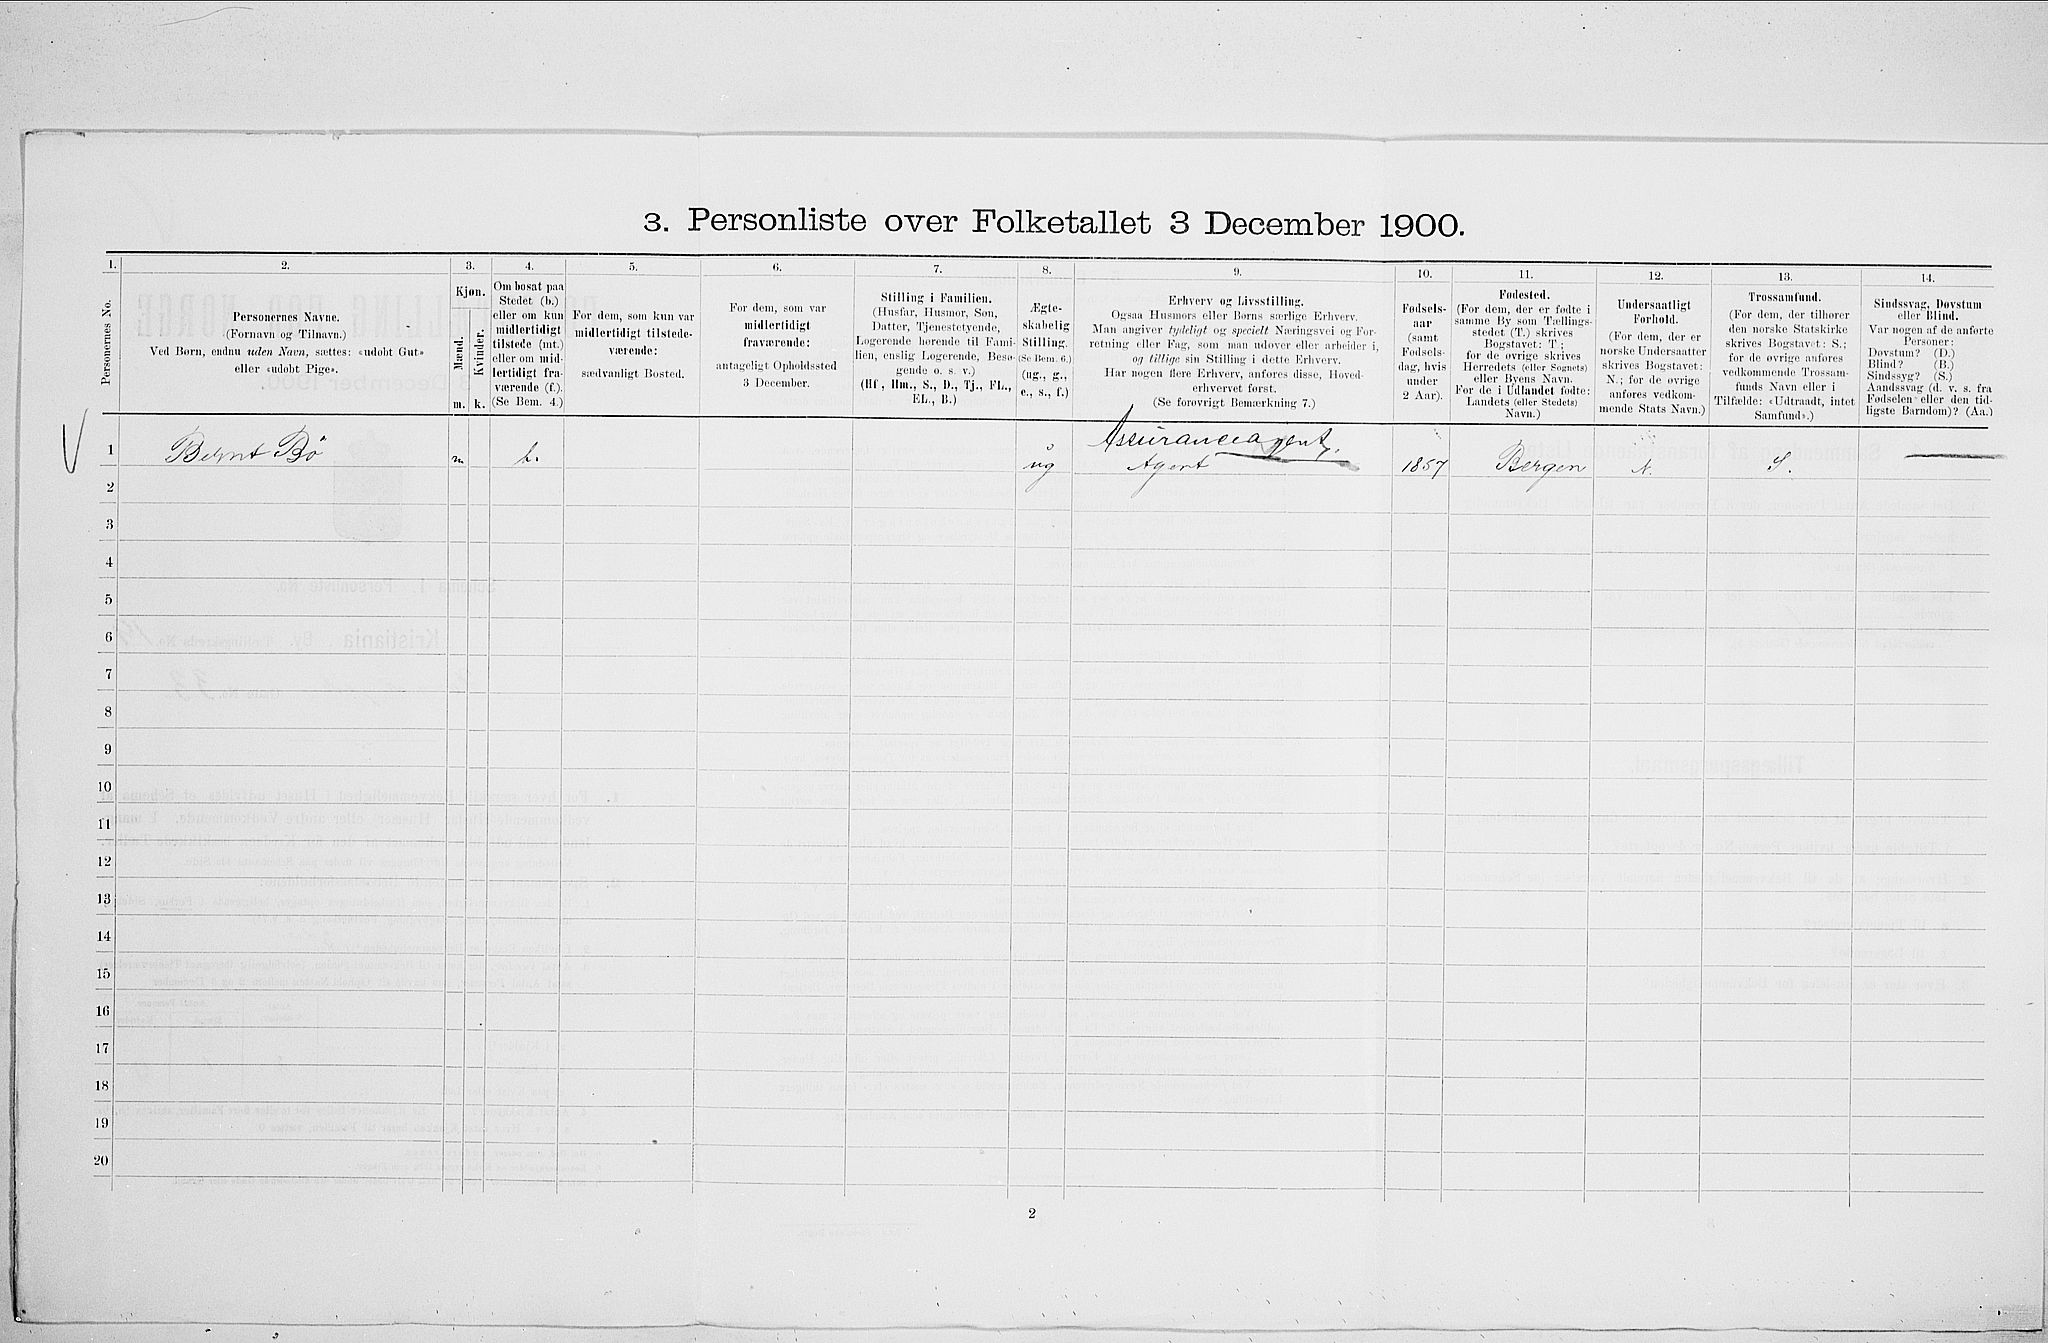 3. Personliste over Folketallet 3 December 1900.
1.
2.
3.
4.
5.
6.
7.
8.
9.
10.
11.
12.
13.
14.
Personernes No.
Personernes Navne.
(Fornavn og Tilnavn.)
Ved Børn, endnu uden Navn, sættes: «udøbt Gut»
eller «udøbt Pige».
Kjøn.
Mænd.
Kvinder.
m.
k.
Om bosat paa
Stedet (b.)
eller om kun
midlertidigt
tilstede (mt.)
eller om mid-
lertidigt fra-
værende (f.).
(Se Bem. 4.)
For dem, som kun var
midlertidigt tilstede-
værende:
sædvanligt Bosted.
For dem, som var
midlertidigt
fraværende:
antageligt Opholdssted
3 December.
Stilling i Familien.
(Husfar, Husmor, Søn,
Datter, Tjenestetyende,
Logerende hørende til Fami-
lien, enslig Logerende, Besø-
gende o. s. v.)
(Hf., Hm., S., D., Tj., FL.,
EL., B.)
Ægte-
skabelig
Stilling.
(Se Bem. 6.)
(ug., g.,
e., s., f.)
Erhverv og Livsstilling.
Ogsaa Husmors eller Børns særlige Erhverv.
Man angiver tydeligt og specielt Næringsvei og For-
retning eller Fag, som man udøver eller arbeider i,
og tillige sin Stilling i dette Erhverv.
Har nogen flere Erhverv, anføres disse, Hoved-
erhvervet først.
(Se forøvrigt Bemærkning 7.)
Fødsels-
aar
(samt
Fødsels-
dag, hvis
under
2 Aar).
Fødested.
(For dem, der er fødte i
samme By som Tællings-
stedet (T.) skrives
Bogstavet: T;
for de øvrige skrives
Herredets (eller Sognets)
eller Byens Navn.
For de i Udlandet fødte:
Landets (eller Stedets)
Navn.)
Undersaatligt
Forhold.
(For dem, der er
norske Undersaatter
skrives Bogstavet:
N.; for de øvrige
anføres vedkom-
mende Stats Navn.)
Trossamfund.
(For dem, der tilhører
den norske Statskirke
skrives Bogstavet: S.;
for de øvrige anføres
vedkommende Trossam-
funds Navn eller i
Tilfælde: «Udtraadt, intet
Samfund».)
Sindssvag, Døvstum
eller Blind.
Var nogen af de anførte
Personer:
Døvstum? (D.)
Blind? (B.)
Sindssyg? (S.)
Aandssvag (d. v. s. fra
Fødselen eller den tid-
ligste Barndom)? (Aa.)
Assuranceagent.
1 Bernt Bö m. b. ug Agent 1857 Bergen N. S.
2
3
4
5
6
7
8
9
10
11
12
13
14
15
16
17
18
19
20
2